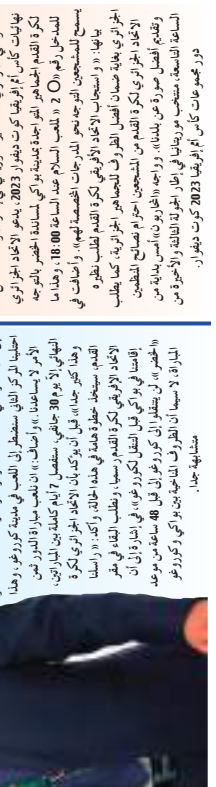 نهائيات كأس أمم إفريقيا كوت ديفوار 2023، يدعو الاتحاد الجزائري
لكرة القدم الجماهير المتواجدة بمدينة بواكي لمساندة الخضر بالتوجه
للمدخل رقم «O 2» لملعب السلام عند الساعة 18:00، وهذا ما
يسمح للمشجعين التوجه نحو المدرجات المخصصة لهم». وأضافت في
بيانها: «واستجاب الاتحاد الأفريقي لكرة القدم لطلب نظيره
الجزائري بغاية ضمان أفضل الظروف للجماهير الجزائرية، كما يطلب
الاتحاد الجزائري لكرة القدم من المشجعين احترام نصائح المنظمين
وتقديم أفضل صورة عن بلدنا». وواجه «المحاربون» أمس بداية من
الساعة التاسعة، منتخب موريتانيا في إطار الجولة الثالثة والأخيرة من
دور مجموعات كأس أمم إفريقيا 2023 كوت ديفوار.
احتلينا المركز الثاني سنضطر إلى اللعب في مدينة كوروغو، وهذا
الأمر لا يساعدنا.» وأضاف: «ان تلعب مباراة الدور ثمن
النهائي إلا يوم 30 جانفي، ستفصل 7 أيام كاملة بين المباراتين،
وهذا كثير جدا»، قبل ان يؤكد بان الاتحاد الجزائري لكرة
القدم، سيتخذ خطوة هامة في هذه الحالة. وأكد: «راسلنا
الاتحاد الإفريقي لكرة القدم رسميا، ونطلب البقاء في مقر
إقامتنا في بواكي قبل التنقل لكوروغو»، في إشارة إلى ان
«الخضر»، لن يتنقلوا إلى كوروغو إلى قبل 48 ساعة من موعد
المباراة، لا سيما ان الظروف المناخية بين بواكي وكوروغو
متشابهة جدا.